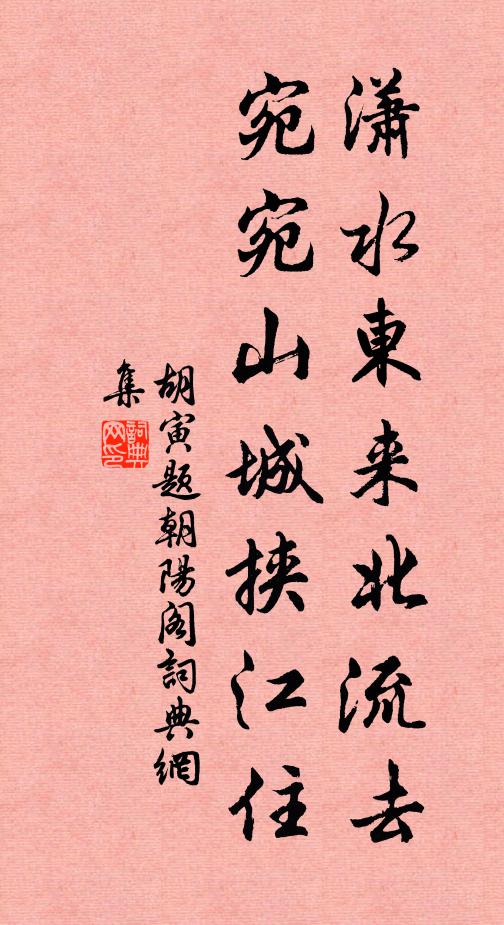 瀟水東来北流去
宛宛山城挟江住
胡寅题朝陽阁詞典網
集
詞典网印